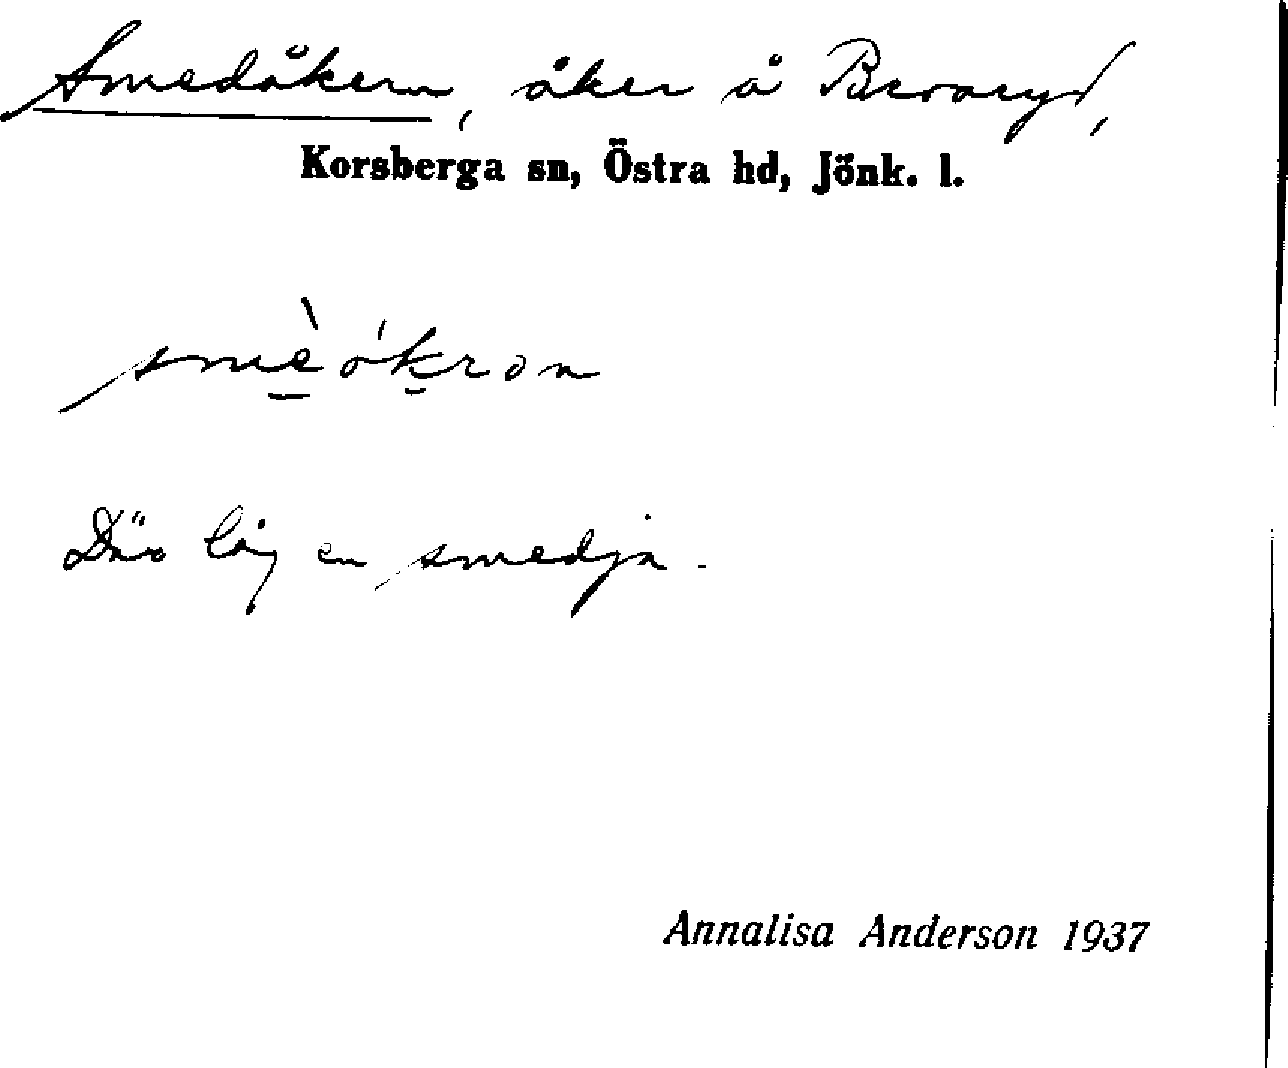 Smedåkern, åker å Beroaryd,
Korsberga sn, Östra hd, Jönk. l.
smèókron
Där låg en smedja.
Annalisa Anderson 1937